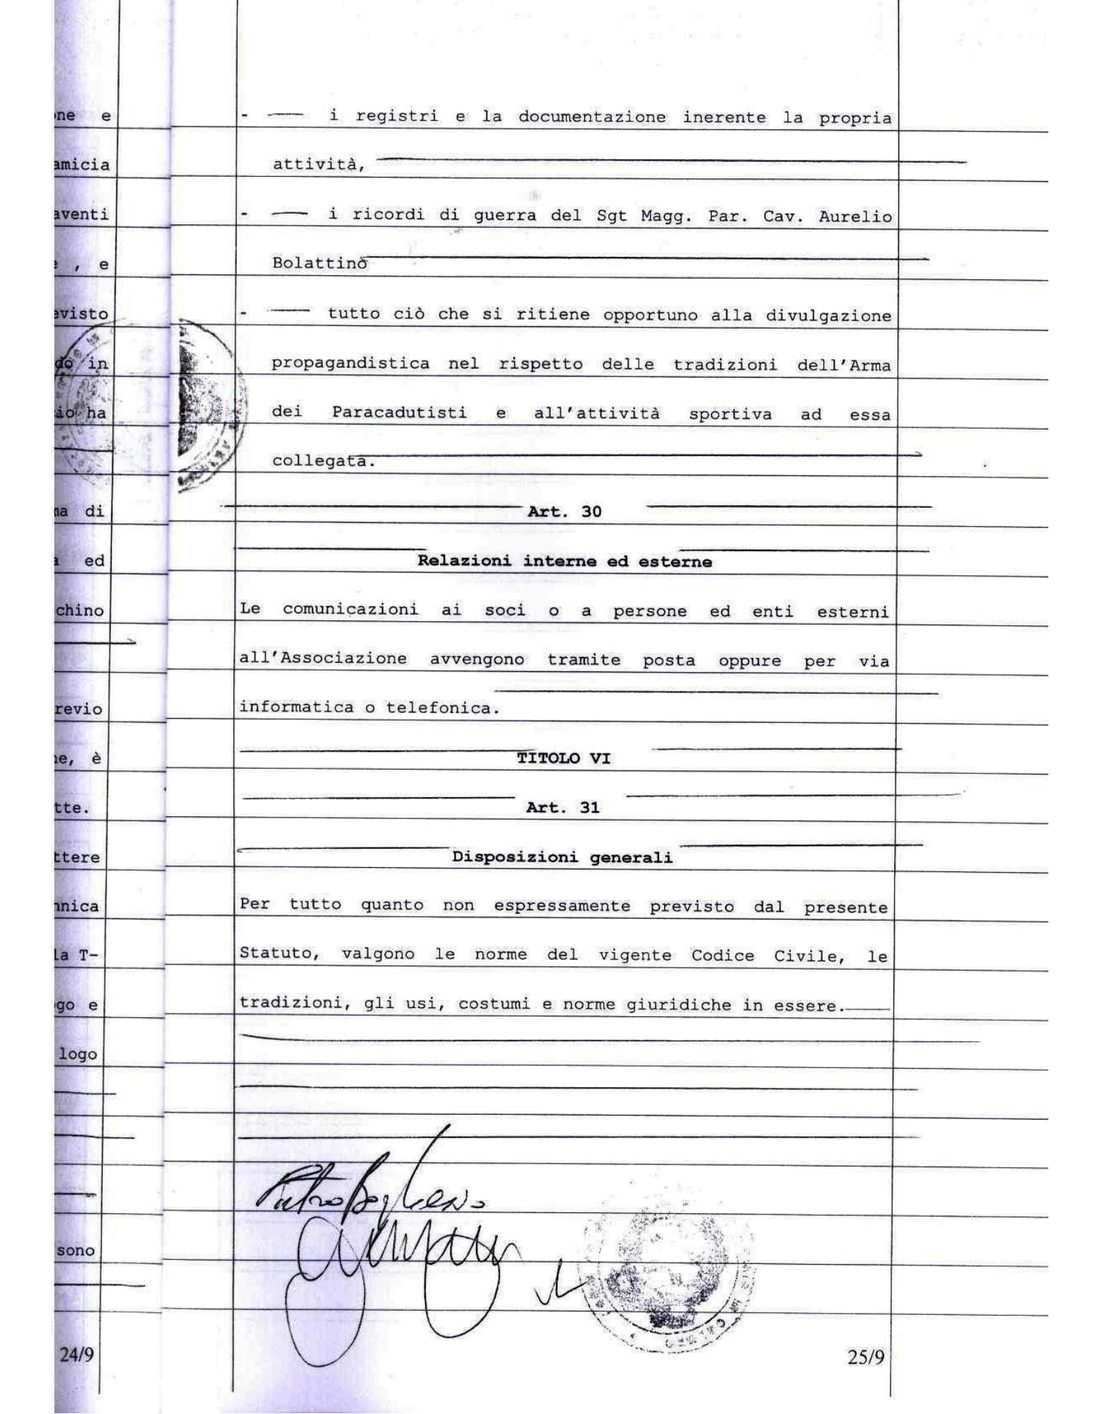 ne e
amicia
aventi
, e
evisto
do in
io ha
na di
ed
chino
revio
ne, è
tte.
ttere
nnica
la T-
go e
logo
sono
24/9
- i registri e la documentazione inerente la propria
attività,
- i ricordi di guerra del Sgt Magg. Par. Cav. Aurelio
Bolattino
- tutto ciò che si ritiene opportuno alla divulgazione
propagandistica nel rispetto delle tradizioni dell'Arma
dei Paracadutisti e all'attività sportiva ad essa
collegata.
Art. 30
Relazioni interne ed esterne
Le comunicazioni ai soci o a persone ed enti esterni
all'Associazione avvengono tramite posta oppure per via
informatica o telefonica.
TITOLO VI
Art. 31
Disposizioni generali
Per tutto quanto non espressamente previsto dal presente
Statuto, valgono le norme del vigente Codice Civile, le
tradizioni, gli usi, costumi e norme giuridiche in essere.
25/9